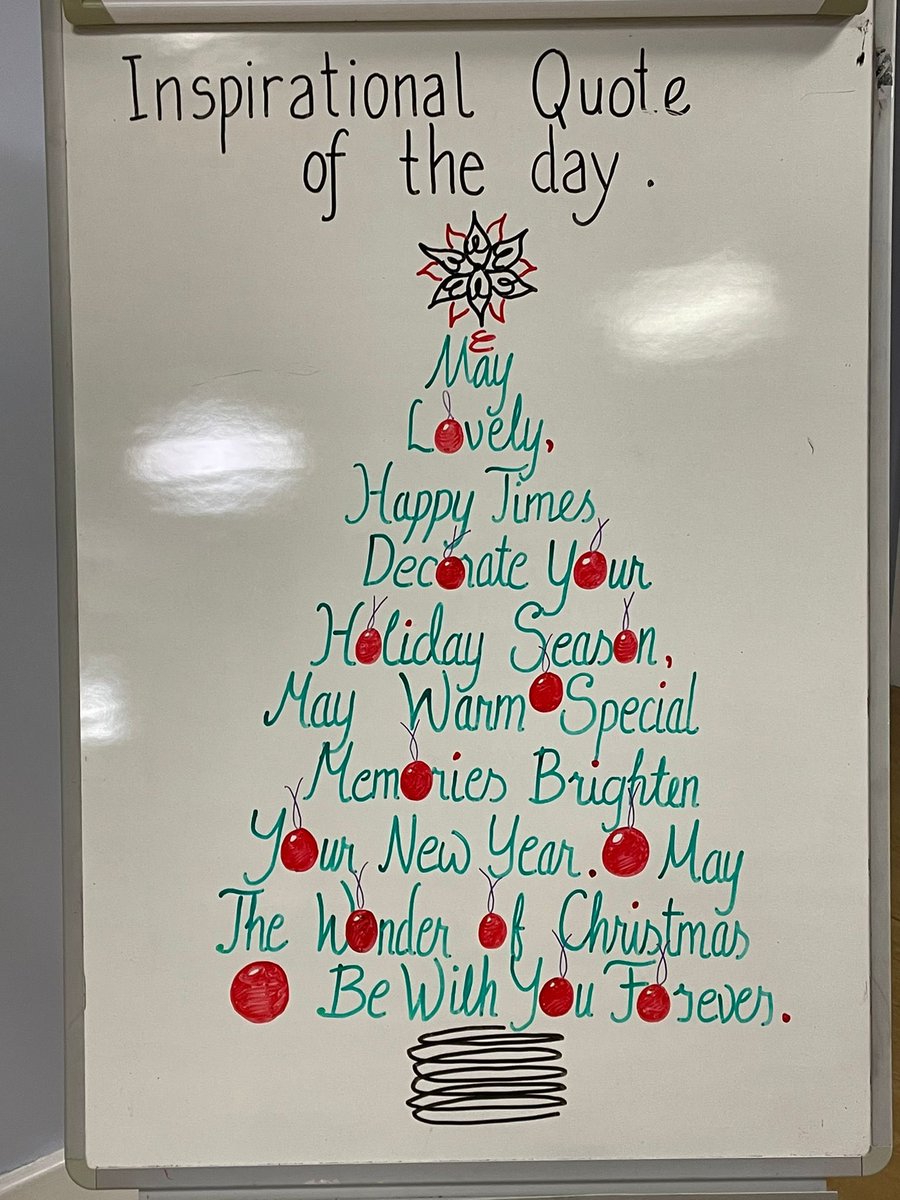 Inspirational Quote
of the day.
May
Lovely,
Happy Times
Decorate Your
Holiday Season,
May Warm Special
Memories Brighten
Your New Year. May
The Wonder of Christmas
Be With You Forever.